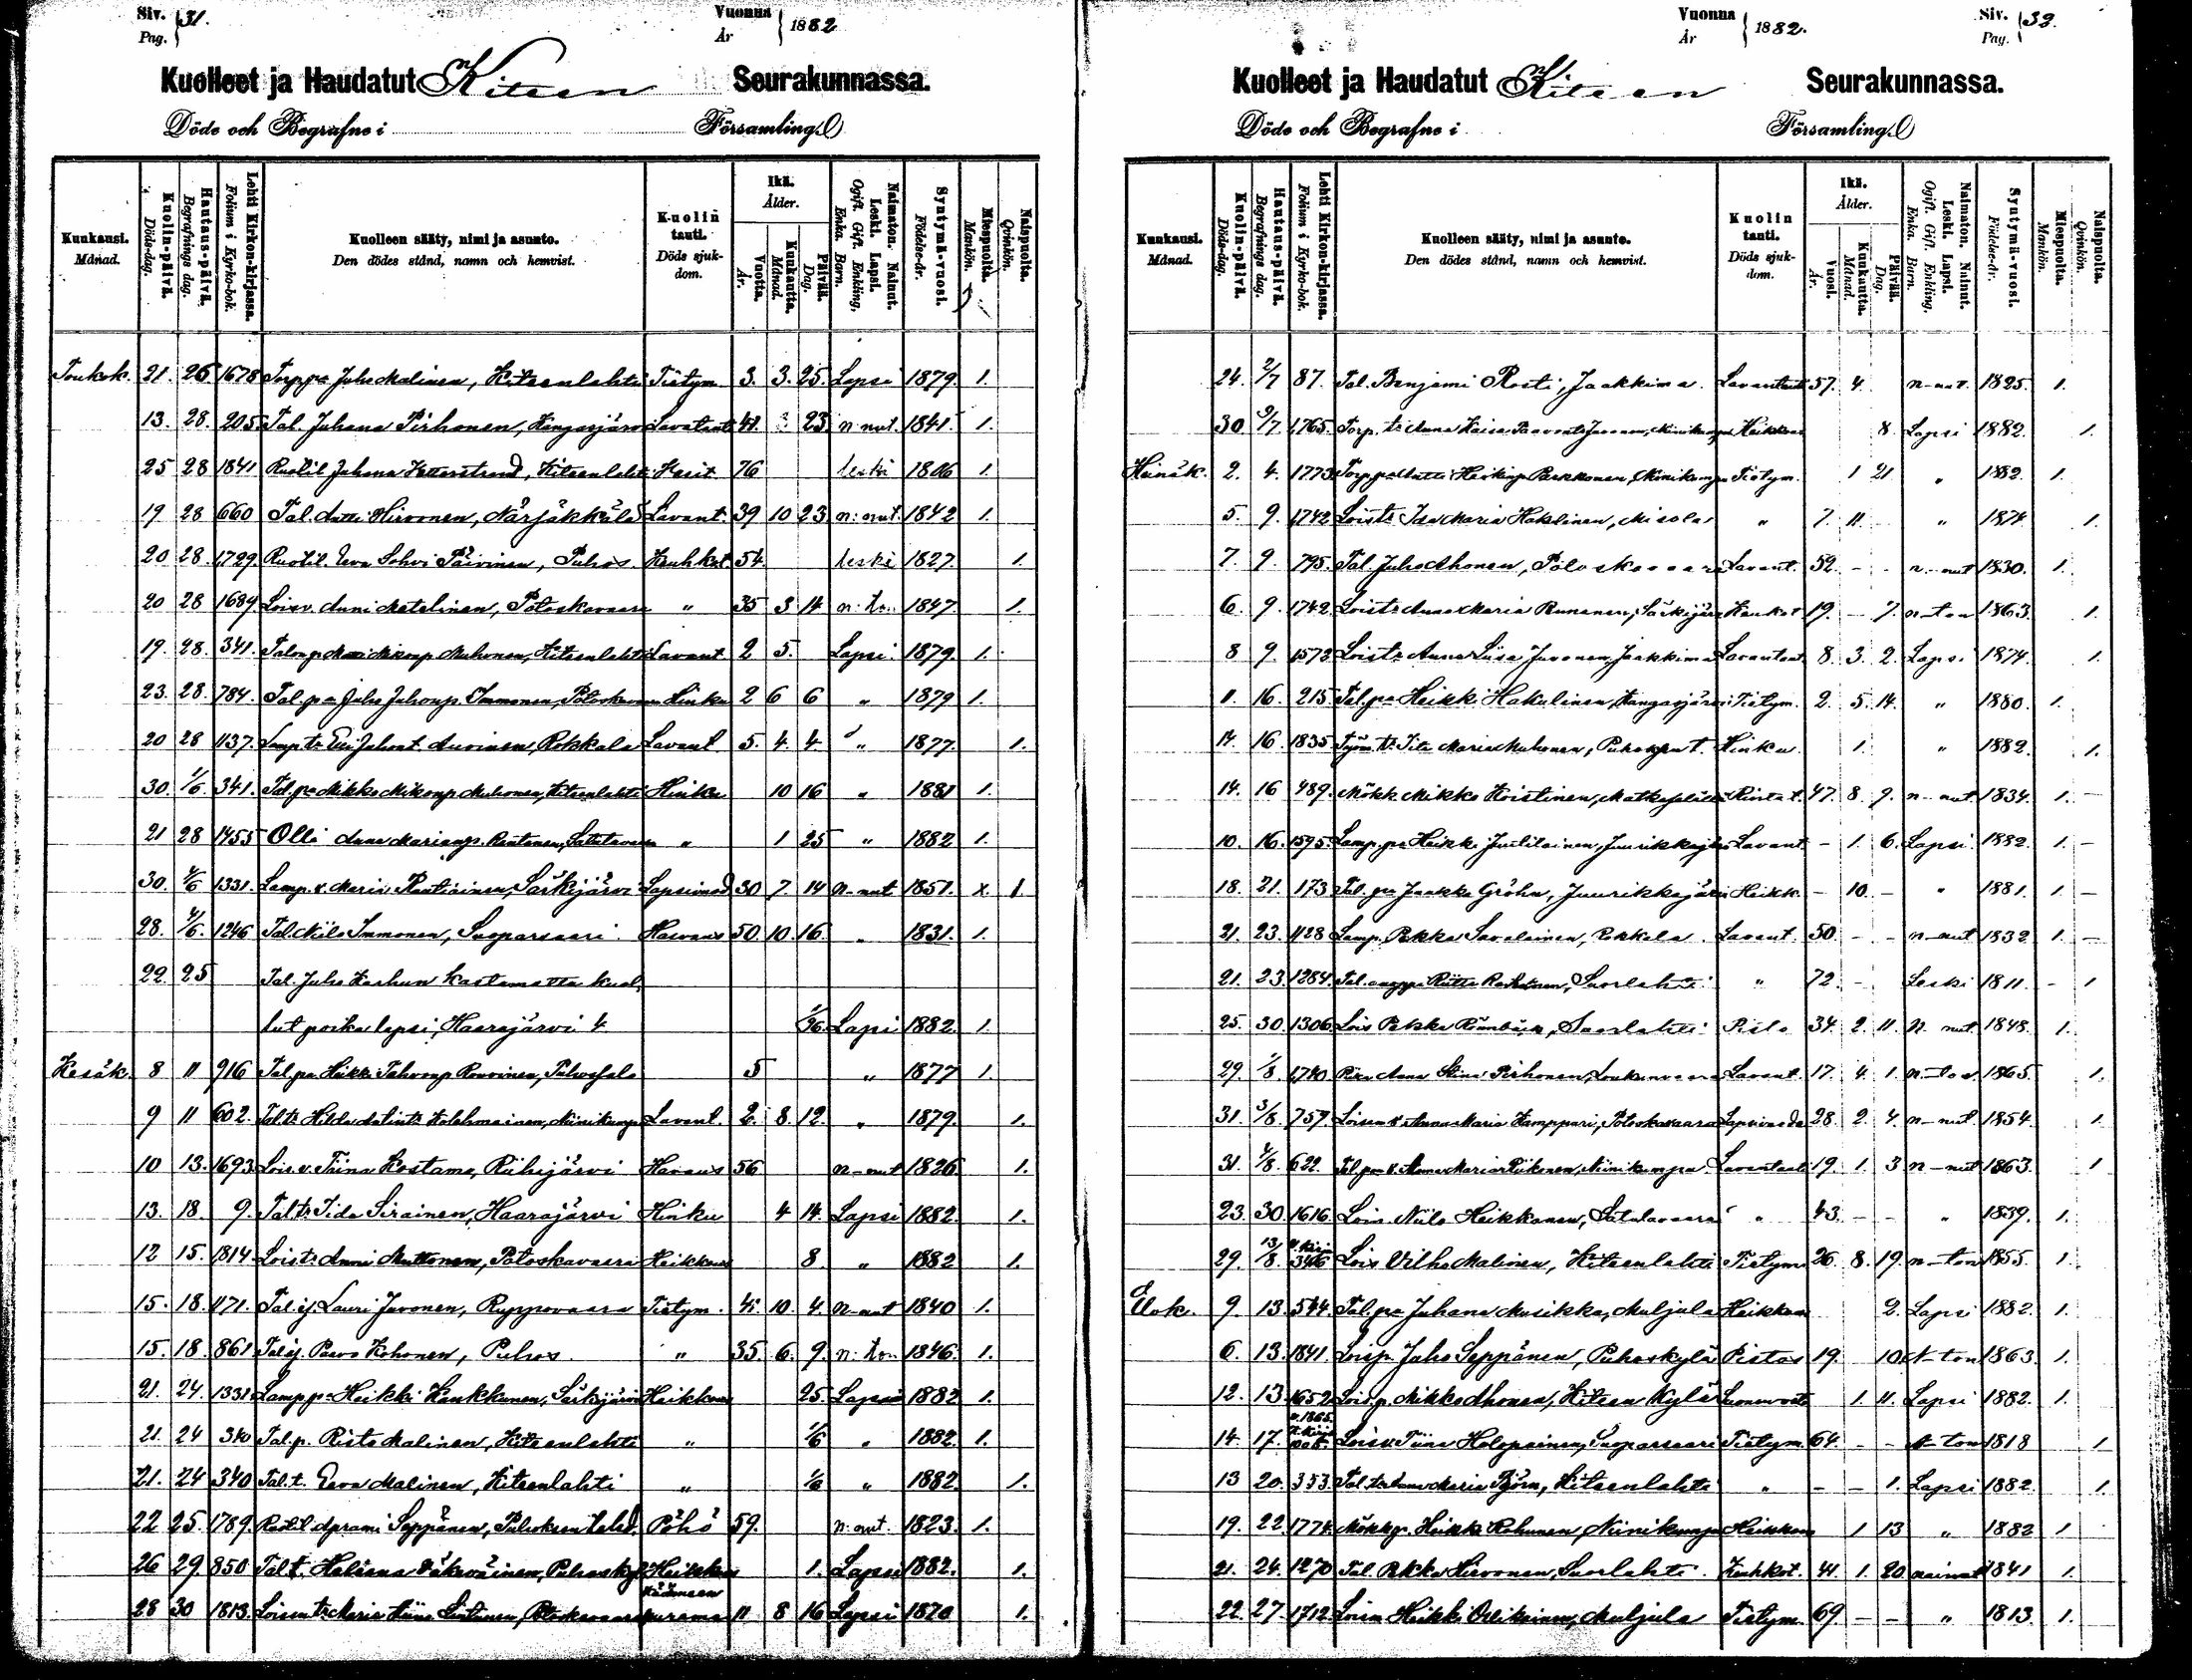 Siv. Pag. 31.
Vuonna År 1882
Kuolleet ja Haudatut Kiteen Seurakunnassa.
Döde och Begrafne i Församling.
Kuukausi. Månad.
Kuolin-päivä. Döds-dag.
Hautaus-päivä. Begrafnings dag.
Lehti Kirkon-kirjassa. Folium i Kyrko-bok.
Kuolleen sääty, nimi ja asunto. Den dödes stånd, namn och hemvist.
Kuolin tauti. Döds sjukdom.
Ikä. Ålder.
Vuotta. År.
Kuukautta. Månad.
Päivää. Dag.
Naimaton. Nainut. Leski. Lapsi. Ogift. Gift. Enkling. Enka. Barn.
Syntymä-vuosi. Födelse-år.
Miespuolta. Mankön.
Naispuolta. Qvinkön.
Toukok. 21. 25 1678 Torp pa Juho Malinen, Kiteenlahti Tietym. 3. 3. 25. Lapsi 1879. 1.
13. 28. 205. Tal. Juhana Pirhonen, Kangasjärvi Lavataut 41. 3 23. n: nut. 1841. 1.
25 28 1841 Ruotil Juhana Zetterstrand, Kiteenlahti 76 leski 1806 1.
19 28 660 Tal. Antti Hirvonen, Närsäkkälä Lavant. 39 10 23 n: nut. 1842 1.
20 28 1729. Ruotil. Eeva Sohvi Päivinen, Puhos Keuhkot. 54. leski 1827. 1.
20 28 1689. Lois v. Anni Matelinen, Potoskavaara " 35 3 14 n: ton 1847. 1.
19. 28. 341. Muhonen, Kiteenlahti Lavant 2 5. Lapsi. 1879. 1.
23. 28. 784. Tal. pa Juho Juhonp. Immonen, Potoskavaara Hinku 2 6 6 " 1879 1.
20 28 1137. Lamp. tr Juhont. Auvinen, Rokkala Lavant. 5. 4. 4 " 1877. 1.
30. 1/6. 341. Tal. pa Mikko Mikonp Muhonen, Kiteenlahti Hinku 10 16 " 1881 1.
21 28 1455 Olli Anna Marianp. Satulavaara " 1 25 " 1882 1.
30. 4/6 1331. Lamp. v. Maria Rautiainen, Särkijärvi Lapsimed 30 7. 14 n-nut 1851. x 1
28. 4/6. 1246 Tal. Niilo Immonen, Suoparsaari Haavaus 50. 10. 16. " 1831. 1.
22. 25 Tal. Juho Karhun kastamatta kuol-
lut poika lapsi, Haarajärvi 4 Lapsi 1882. 1.
Kesäk. 8 11 916 Tal. pa Heikki Rouvinen, Puhossalo 5 " 1877 1.
9 11 602. Tal. tr Hilda Kolehmainen, Niinikumpu Lavant. 2. 8. 12. " 1879. 1.
10 13. 1693 Lois. v. Tiina Kostamo, Riihijärvi Havaus 56 n-nut 1826. 1.
13. 18. 9. Tal. tr. Iida Sirainen, Haarajärvi Hinku 4 14. Lapsi 1882. 1.
12 15. 1814 Lois tr. Anni Muttonen, Potoskavaara Heikkous 8. " 1882 1.
15. 18. 1171. Tal. ij. Lauri Juvonen, Ruppovaara Tietym. 41. 10. 4. n-nut 1840 1.
15. 18. 861. Tal. ij. Paavo Kohonen, Puhos " 35. 6. 9. n: ton 1846. 1.
21. 24. 1331 Lamp. pa Heikki Kaukkunen, Särkijärvi Heikkous 25. Lapsi 1882. 1.
21. 24 340 Tal. p. Risto Malinen, Kiteenlahti " 1/6 " 1882. 1.
21. 24 340 Tal. t. Eeva Malinen, Kiteenlahti " 1/6 " 1882. 1.
22 25. 1789. Ruotil Aprami Seppänen, Pöhö 59. n: nut. 1823. 1.
26 29. 850 Tal. t. Väkeväinen, Heikkous 1. Lapsi 1882. 1.
28 30 1813. Loisen tr. Maria Potoskavaara 11 8 16 Lapsi 1870 1.
Vuonna År 1882.
Siv. Pag. 32.
Kuolleet ja Haudatut Kiteen Seurakunnassa.
Döde och Begrafne i Församling.
Kuukausi. Månad.
Kuolin-päivä. Döds-dag.
Hautaus-päivä. Begrafnings dag.
Lehti Kirkon-kirjassa. Folium i Kyrko-bok.
Kuolleen sääty, nimi ja asunto. Den dödes stånd, namn och hemvist.
Kuolin tauti. Döds sjukdom.
Ikä. Ålder.
Vuosi. År.
Kuukautta. Månad.
Päivää. Dag.
Naimaton. Nainut. Leski. Lapsi. Ogift. Gift. Enkling. Enka. Barn.
Syntymä-vuosi. Födelse-år.
Miespuolta. Mankön.
Naispuolta. Qvinkön.
24. 2/7 87. Tal. Benjami Rosti, Jaakkima Lavantaut 57. 4. n-nut. 1825. 1.
30 9/7. 1765. Torp. tr Anna Kaisa Niinikumpu Heikkous 8. Lapsi 1882. 1.
Heinäk. 2. 4. 1773 Torp pa Antti Heikinp Parkkonen, Niinikumpu Tietym. 1 21 " 1882. 1.
5. 9. 1742 Lois tr Ida Maria Hakulinen, Misola " 7. 11. " 1874. 1.
7. 9. 795. Tal. Juho Ahonen, Potoskavaara Lavant. 52. - - n-nut 1830. 1.
6. 9. 1742. Lois tr Anna Maria Rummunen, Särkijärvi Keuhkot 19. - 7. n-ton 1863. 1.
8 9. 1573 Lois tr Anna Liisa Juvonen, Jaakkima Lavantaut 8. 3. 2. Lapsi 1874. 1.
11. 16. 215. Tal. pa Heikki Hakulinen, Kangasjärvi Tietym. 2. 5. 14. " 1880. 1.
14. 16. 1835 Työm. tr. Maria Muhonen, Hinku. 1. " 1882. 1.
14. 16 489. Mökk Mikko Koistinen, Matkaselkä Rintat. 47. 8. 9. n-nut 1834. 1. -
10. 16. 1595. Lamp. pa Heikki Juutilainen, Juurikkajärvi Lavant. - 1. 6. Lapsi 1882. 1. -
18. 21. 173 Tal. pa Jaakko Gröhn, Juurikkajärvi Heikk. - 10. - " 1881. 1. -
21. 23. 1128 Lamp. Pekka Savolainen, Rokkala Lavant. 50. - - n-nut 1832. 1. -
21. 23. 1284. Tal. Riitta Suorlahti " 72. - Leski 1811. - 1
25. 30. 1306. Lois Pekka Suorlahti 34. 2. 11. n-nut 1848. 1.
29. 1/8. 1740 Anna Stina Pirhonen, Loukunvaara Lavant. 17. 4. 1. n-ton 1865. 1.
31. 3/8. 759. Loisen v. Anna Maria Kamppuri, Potoskavaara Lapsimed 28. 2. 4. n-nut. 1854. 1.
31. 4/8. 622. Tal. pa v. Anna Maria Piikonen, Niinikumpu Lavantaut 19. 1. 3 n-nut 1863. 1
23. 30. 1616. Lois Niilo Heikkonen, Satulavaara " 43. - - " 1839. 1.
29. 13/8. Lois Vilho Malinen, Kiteenlahti Tietym 26. 8. 19. n-ton 1855. 1.
Elok. 9. 13. 544. Tal. pa Juhana Musikka, Muljula Heikkous 2. Lapsi 1882. 1.
6. 13. 1841. Lois p. Juho Seppänen, Puhoskylä Pistos 19. 10 n-ton 1863. 1.
12. 13. 1652 Lois p. Mikko Ahonen, Kiteen Kylä 1. 11. Lapsi 1882. 1.
14. 17. Lois v. Tiina Holopainen, Suoparsaari Tietym. 64. - - n-ton 1818 1
13 20. 353. Tal. tr. Anna Maria Björn, Kiteenlahti " - - 1. Lapsi 1882. 1.
19. 22. 1774. Mökk p. Heikki Rahunen, Niinikumpu Heikkous 1 13 " 1882 1
21. 24. 1270 Tal. Pekka Hirvonen, Suorlahti Keuhkot. 41. 1. 20 nainut 1841 1.
22. 27. 1712 Loisen Heikki Ollikainen, Muljula Tietym. 69 - - " 1813. 1.